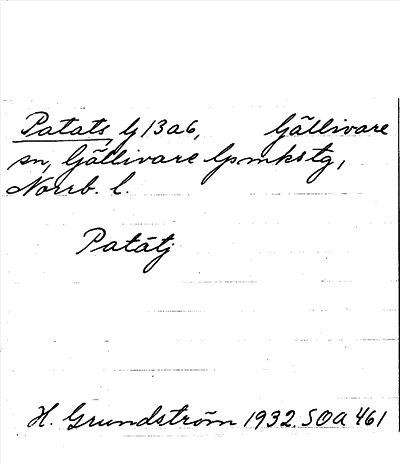 Patats, G 13a6, Gällivare
sn, Gällivare lpmkstg,
Norrb. l.
Patåtj
H. Grundström 1932. SOA 461